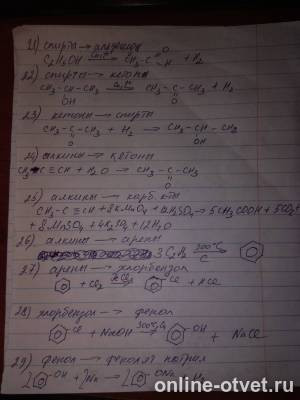 21) спирты → альдегиды
C₂H₅OH → CH₃-C=O H + H₂
22) спирты → кетоны
CH₃-CH-CH₃ → CH₃-C-CH₃ + H₂
OH O
23) кетоны → спирты
CH₃-C-CH₃ + H₂ → CH₃-CH-CH₃
O OH
24) алкины → кетоны
CH₃-C≡CH + H₂O → CH₃-C-CH₃
O
25) алкины → карб. к-ты
CH₃-C≡CH + 8KMnO₄ + 12H₂SO₄ → 5CH₃COOH + 5CO₂
+ 8MnSO₄ + 4K₂SO₄ + 12H₂O
26) алкины → арены
3C₂H₂ 300°C C
27) арены → хлорбензол
+ Cl₂ Cl + HCl
28) хлорбензол → фенол
Cl + NaOH 300°C OH + NaCl
29) фенол → фенолят натрия
2 OH + 2Na → 2 ONa
online-otvet.ru